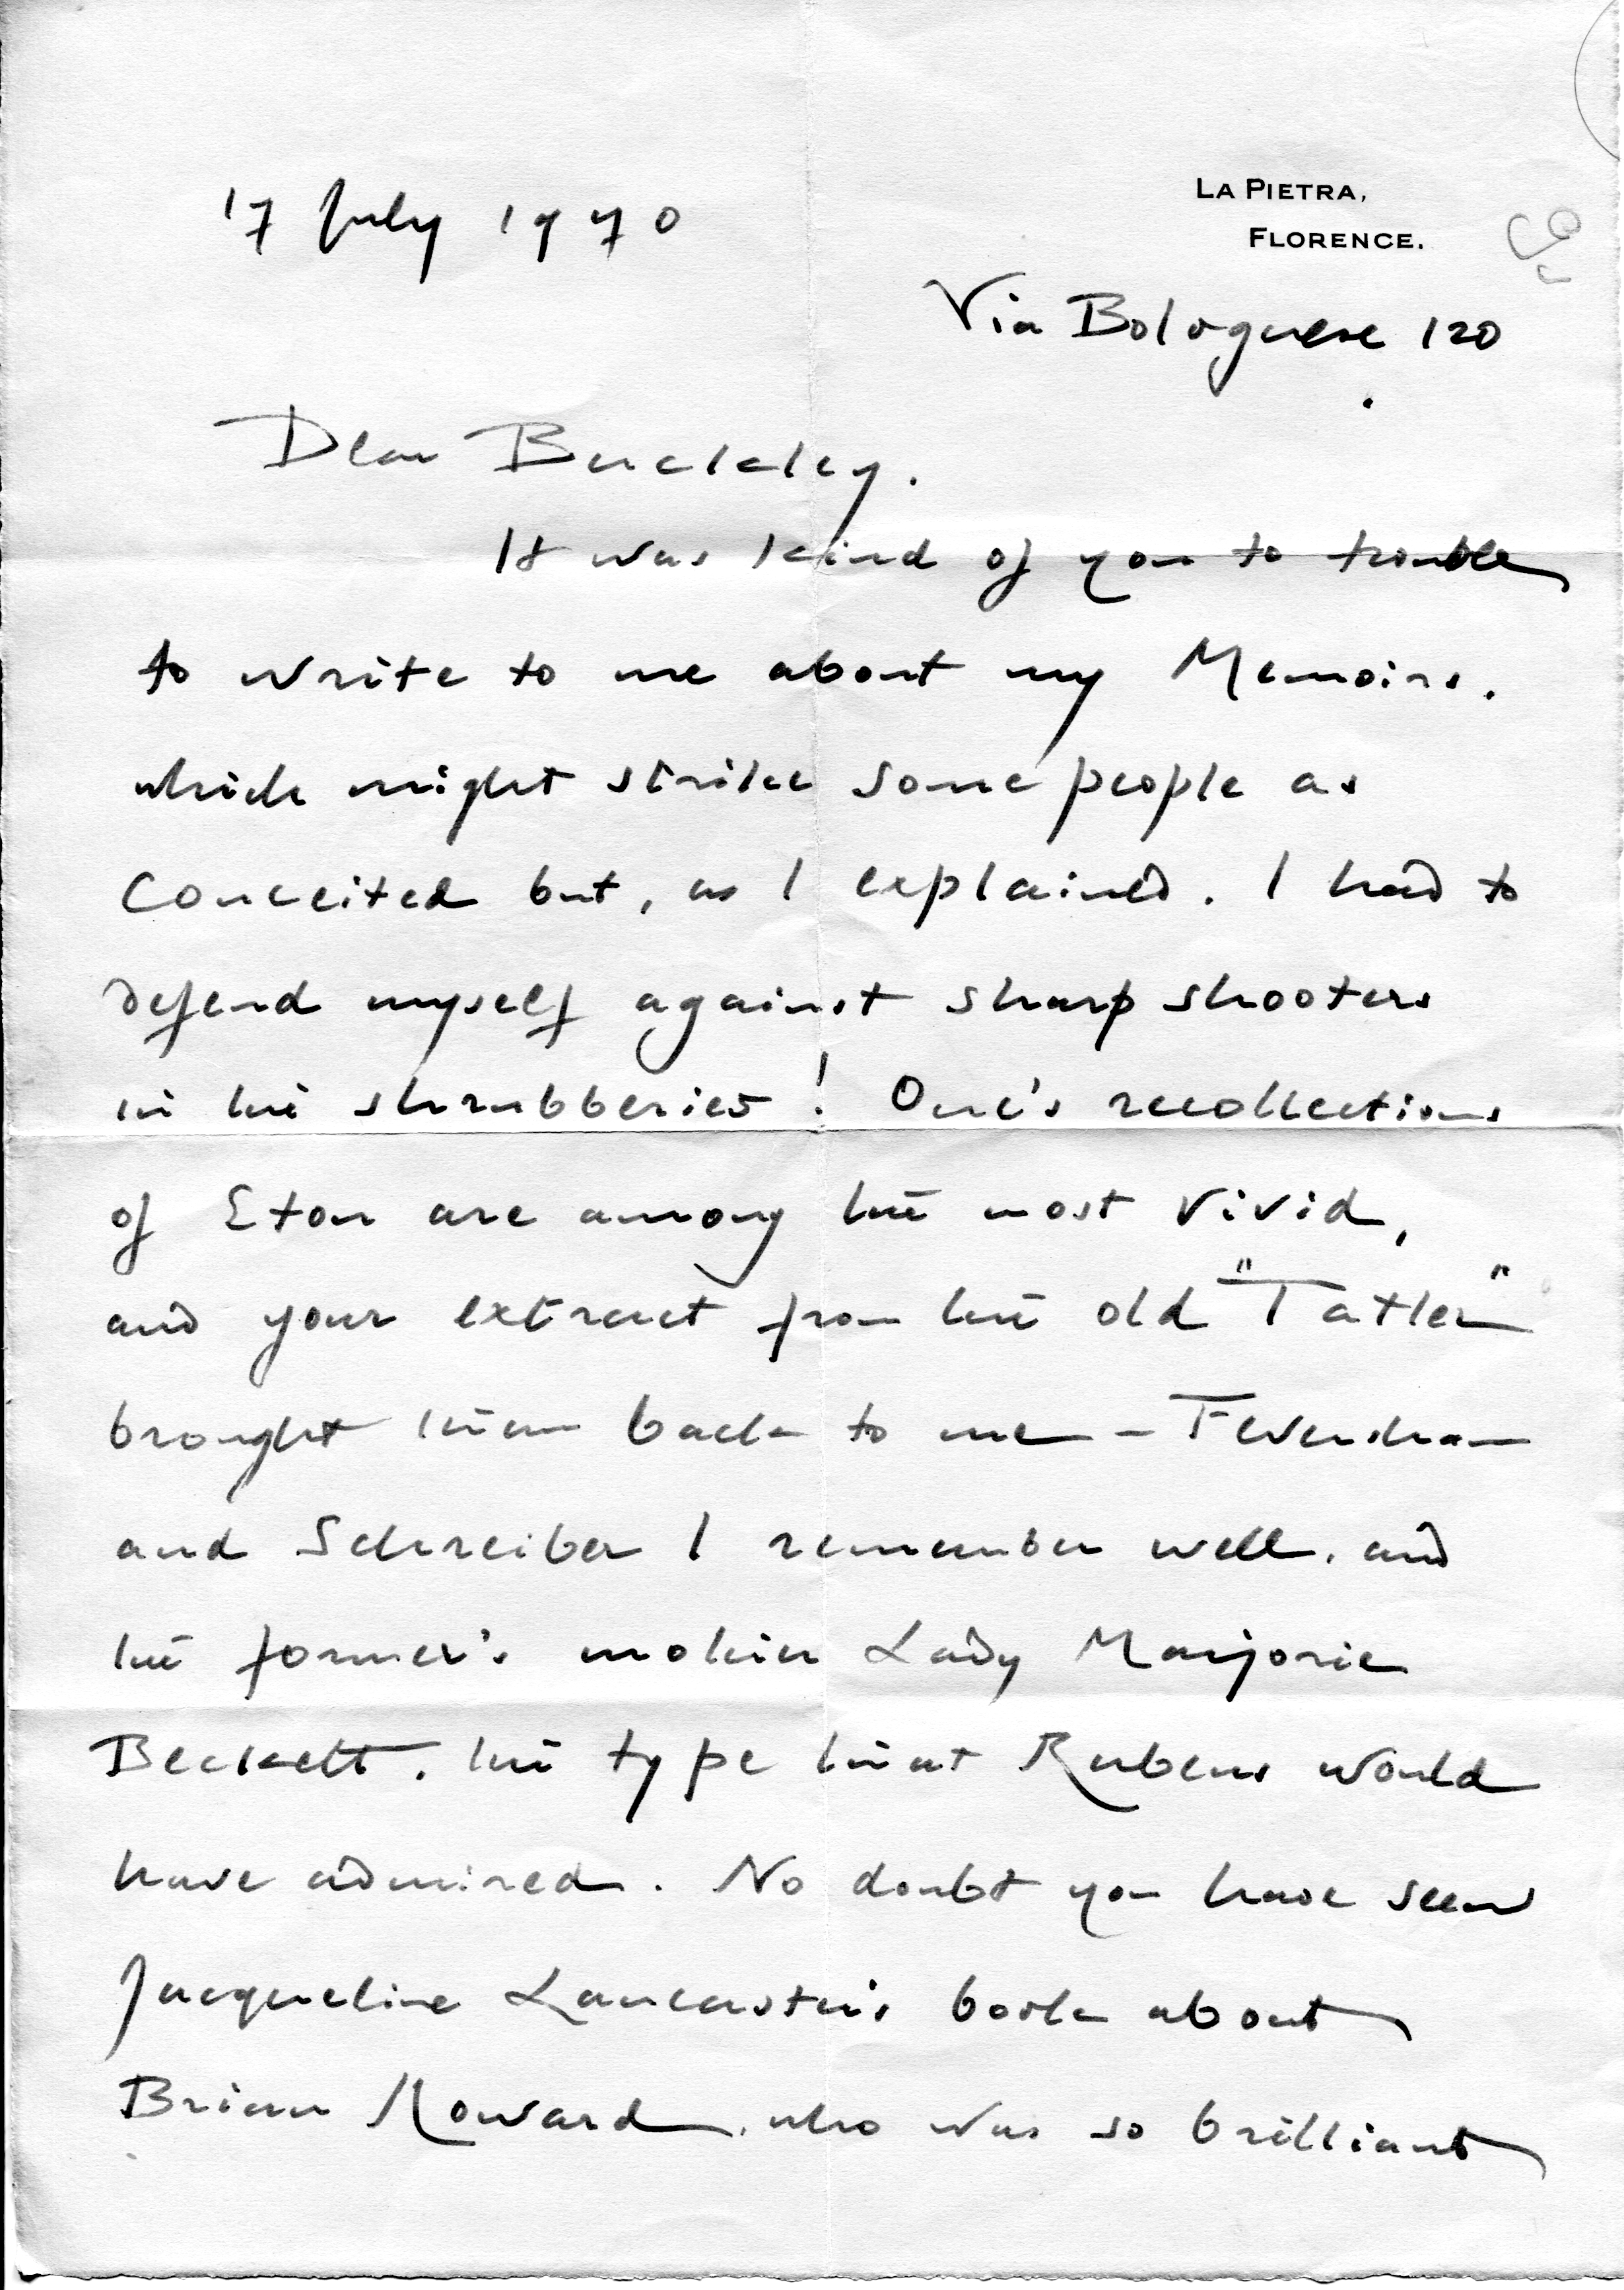 17 July 1970
LA PIETRA,
FLORENCE.
Via Bolognese 120
Dear Buckley.
It was kind of you to trouble
to write to me about my Memoirs.
which might strike some people as
conceited but, as I explained. I had to
defend myself against sharp shooters
in the shrubberies! One's recollections
of Eton are among the most vivid,
and your extract from the old "Tatler"
brought them back to me - Feversham
and Schreiber I remember well. and
the former's mother Lady Marjorie
Beckett. the type that Rubens would
have admired. No doubt you have seen
Jacqueline Lancaster's book about
Brian Howard. who was so brilliant